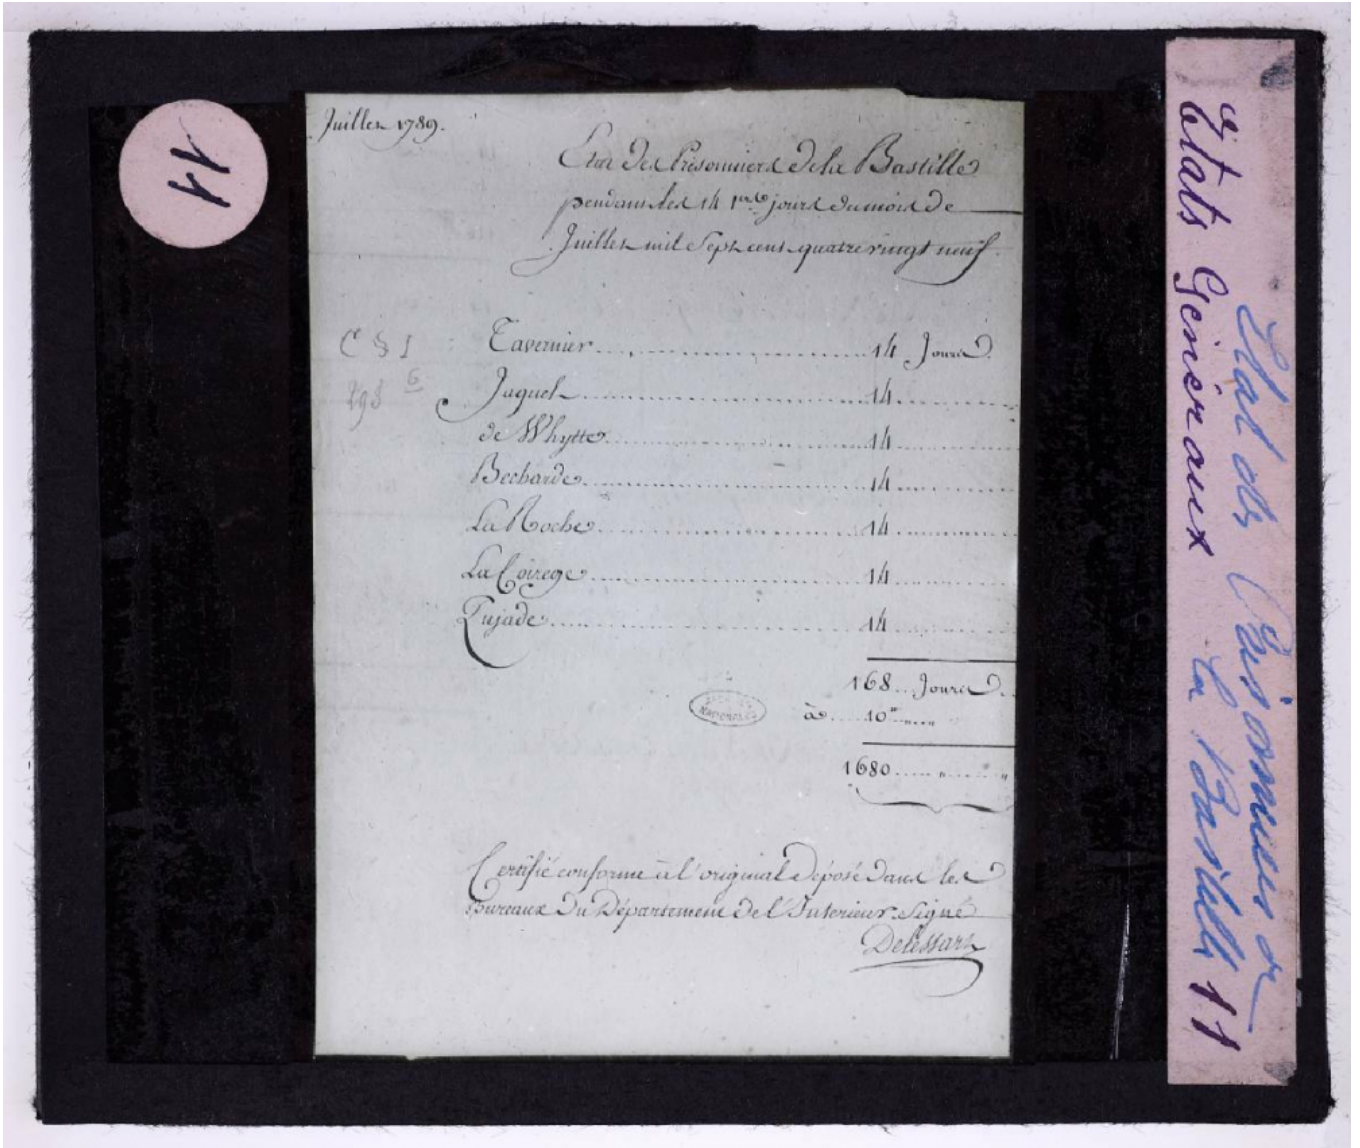 11
Juillet 1789.
Etat des Prisonniers de la Bastille
pendant les 14 1ers jours du mois de
Juillet mil Sept cent quatre vingt neuf
C § I
298 6
Tavernier 14 Jours
Jaquet 14
de Whytte 14
Bechade 14
La Roche 14
La Coirege 14
Pujade 14
168 Jours
à 10
1680
ARCHIVES
NATIONALES
Certifié conforme à l'original déposé dans les
Bureaux du Département de l'Interieur. Signé
Delessart
Etats Généraux
Etat des Prisonniers de
la Bastille 11